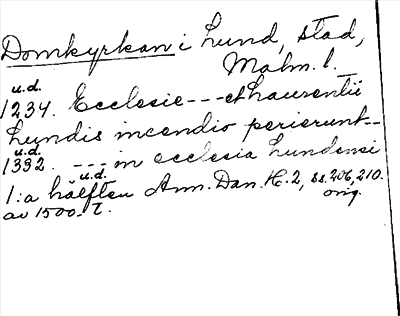 Domkyrkan i Lund, stad,
Malm. l.
u.d.
1234. Ecclesie --- et Laurentii
Lundis incendio perierunt--
u.d.
1332. --- in ecclesia Lundensi
u.d.
1:a hälften Ann. Dan. H. 2, ss. 206, 210.
av 1500-t. orig.